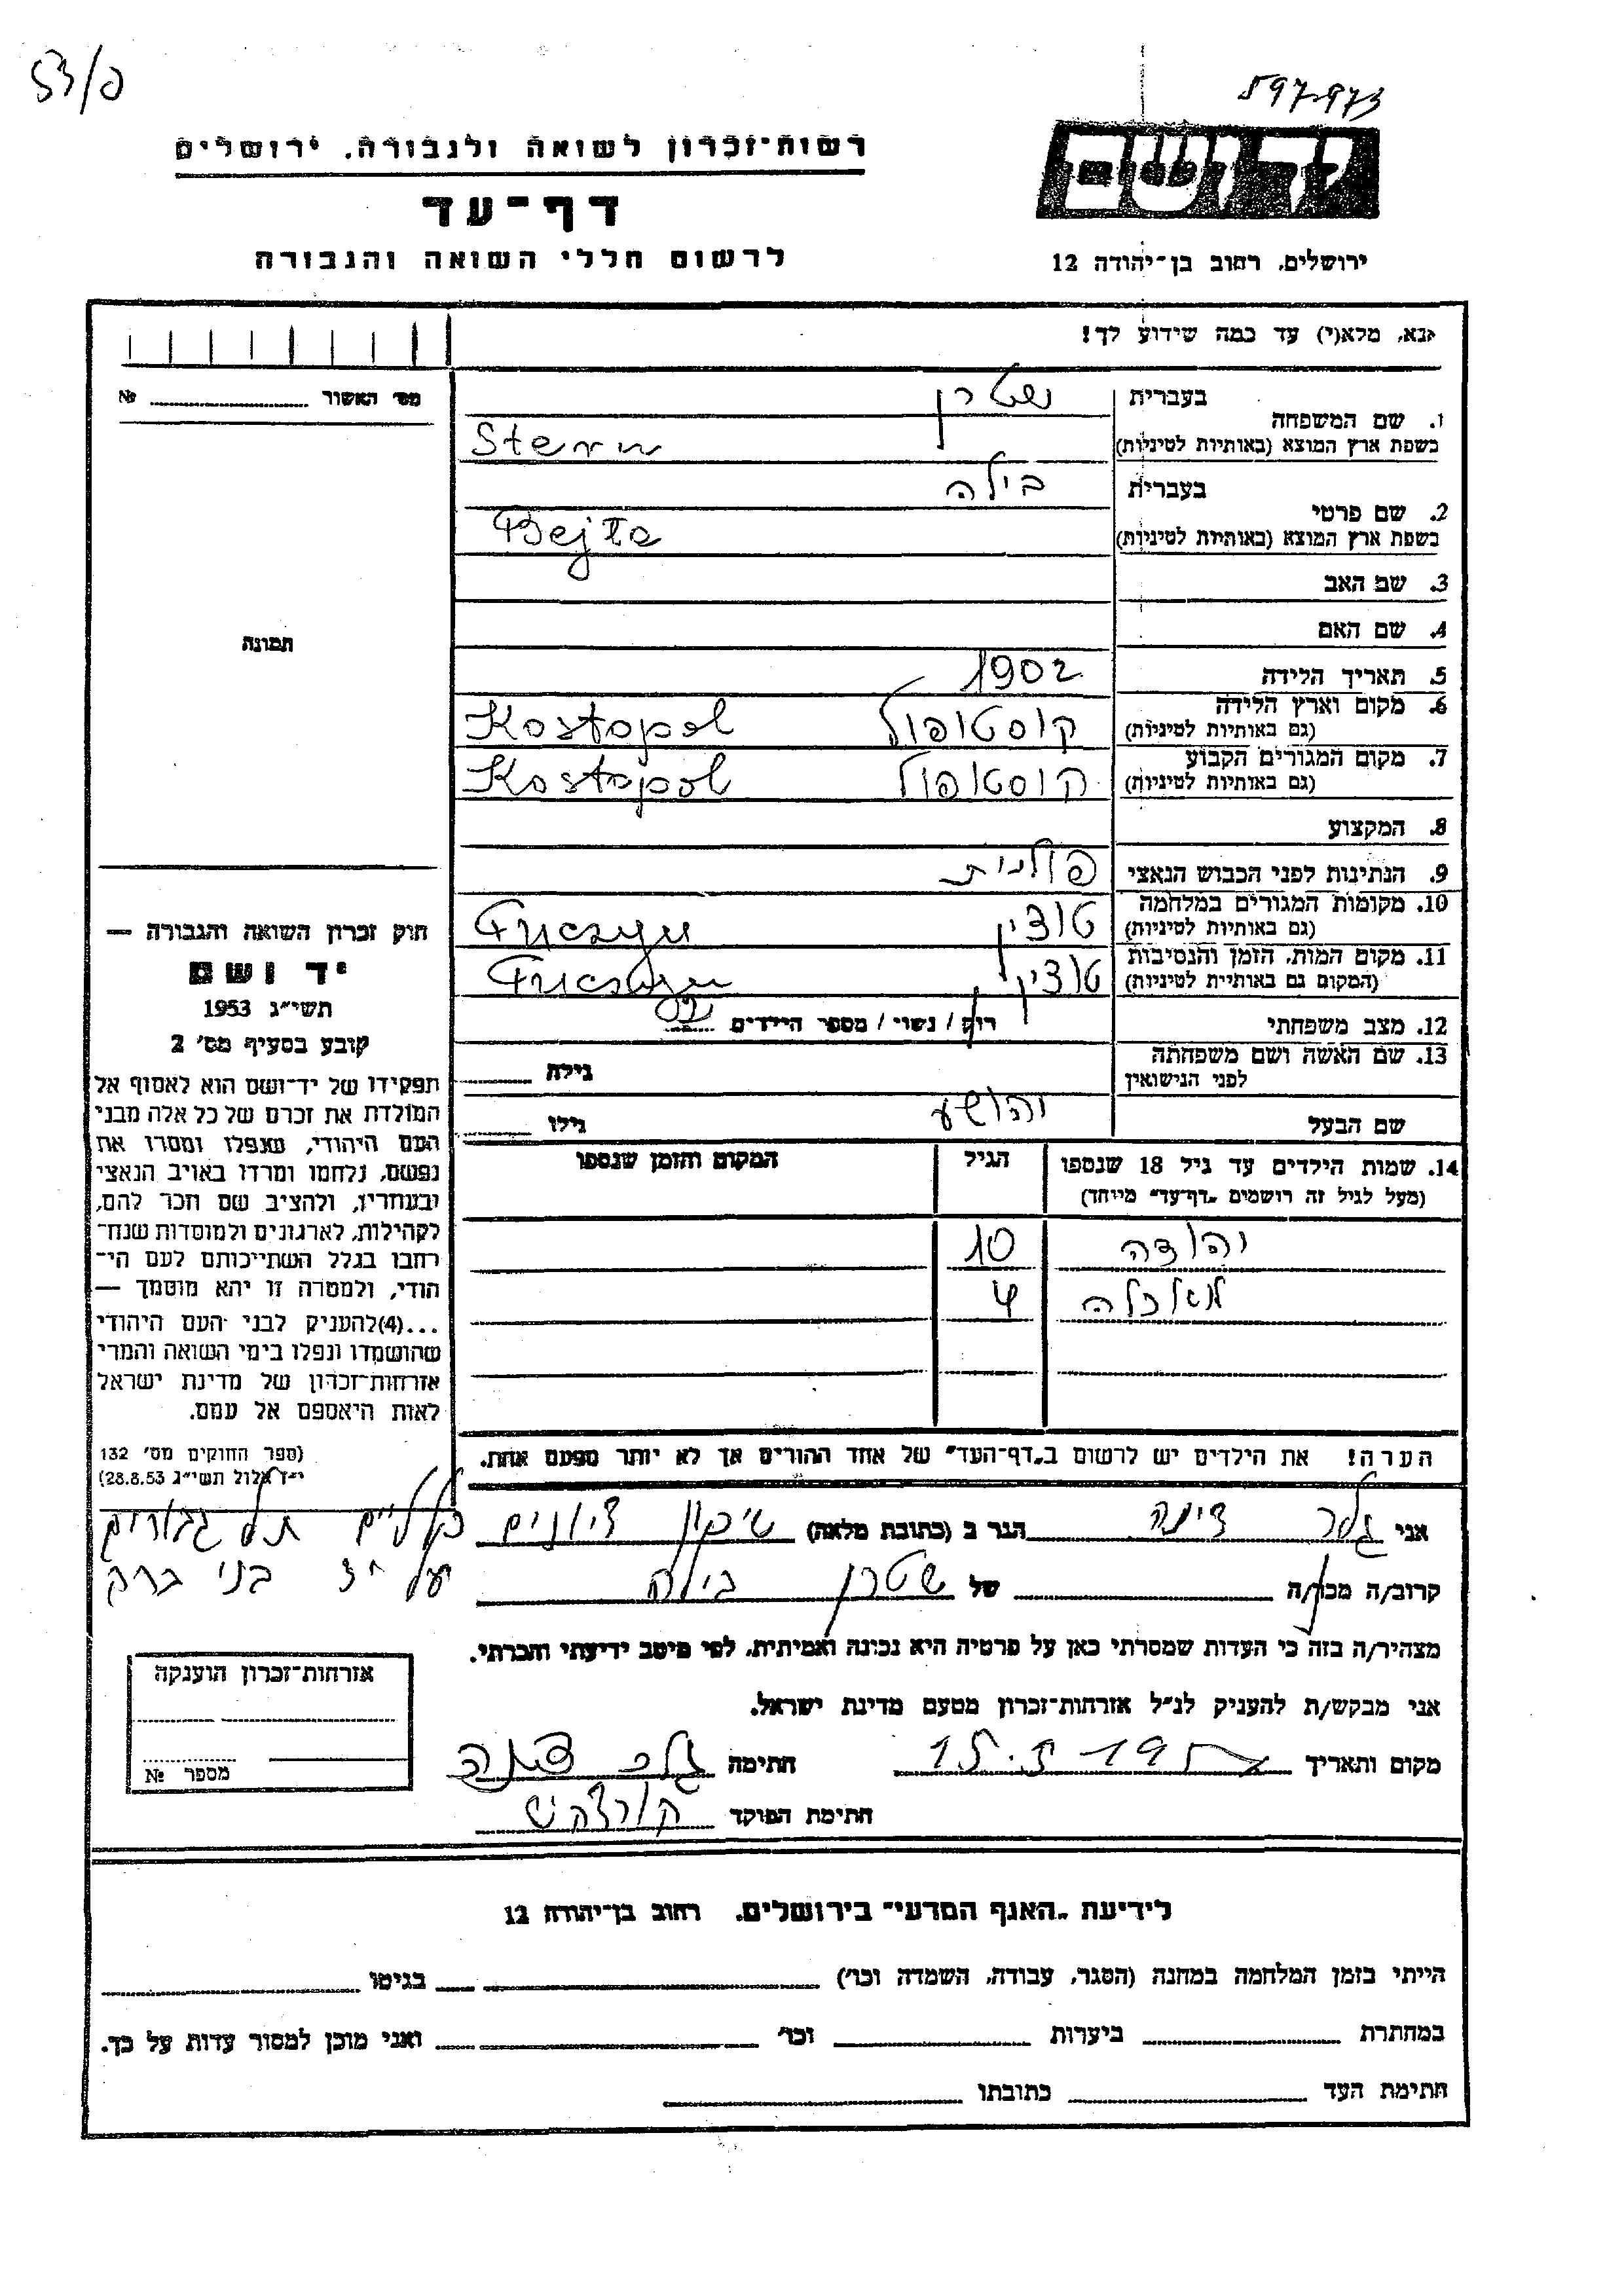 53/פ
597973
רשות־זכרון לשואה ולגבורה, ירושלים
דף־עד
לרשום חללי השואה והגבורה
יד ושם
ירושלים, רחוב בן־יהודה 12
אנא, מלא(י) עד כמה שידוע לך!
מס' האשור № 
1. שם המשפחה בעברית שטרן
בשפת ארץ המוצא (באותיות לטיניות) Stern
2. שם פרטי בעברית בילה
בשפת ארץ המוצא (באותיות לטיניות) Bejła
3. שם האב
4. שם האם
תמונה
5. תאריך הלידה 1902
6. מקום וארץ הלידה (גם באותיות לטיניות) קוסטופול Kostopol
7. מקום המגורים הקבוע (גם באותיות לטיניות) קוסטופול Kostopol
8. המקצוע
9. הנתינות לפני הכבוש הנאצי פולנית
10. מקומות המגורים במלחמה (גם באותיות לטיניות) טוצין Tuczyn
11. מקום המות, הזמן והנסיבות (המקום גם באותיות לטיניות) טוצין Tuczyn
12. מצב משפחתי רוק / נשוי / מספר הילדים
13. שם האשה ושם משפחתה לפני הנישואין גילה
שם הבעל יהושע גילו
14. שמות הילדים עד גיל 18 שנספו הגיל המקום והזמן שנספו
(מעל לגיל זה רושמים „דף־עד" מיוחד)
יהודה 10
4
הערה! את הילדים יש לרשום ב„דף־העד" של אחד ההורים אך לא יותר מפעם אחת.
חוק זכרון השואה והגבורה —
יד ושם
תשי"ג 1953
קובע בסעיף מס' 2
תפקידו של יד־ושם הוא לאסוף אל
המולדת את זכרם של כל אלה מבני
העם היהודי, שנפלו ומסרו את
נפשם, נלחמו ומרדו באויב הנאצי
ובעוזריו, ולהציב שם וזכר להם,
לקהילות, לארגונים ולמוסדות שנח־
רבו בגלל השתייכותם לעם הי־
הודי, ולמטרה זו יהא מוסמך —
...(4) להעניק לבני העם היהודי
שהושמדו ונפלו בימי השואה והמרי
אזרחות־זכרון של מדינת ישראל
לאות היאספם אל עמם.
(ספר החוקים מס' 132
י"ז אלול תשי"ג 28.8.53)
אני גלר דינה הגר ב (כתובת מלאה) שיכון ציונים כלליים תל גבורים
קרוב/ה מכר/ה של שטרן בילה בני ברק
מצהיר/ה בזה כי העדות שמסרתי כאן על פרטיה היא נכונה ואמיתית, לפי מיטב ידיעתי והכרתי.
אני מבקש/ת להעניק לנ"ל אזרחות־זכרון מטעם מדינת ישראל.
מקום ותאריך חתימה גלר דינה
חתימת הפוקד
אזרחות־זכרון הוענקה
מספר №
לידיעת „האגף המדעי" בירושלים, רחוב בן־יהודה 12
הייתי בזמן המלחמה במחנה (הסגר, עבודה, השמדה וכו') בגיטו
במחתרת ביערות וכו' ואני מוכן למסור עדות על כך.
חתימת העד כתובתו